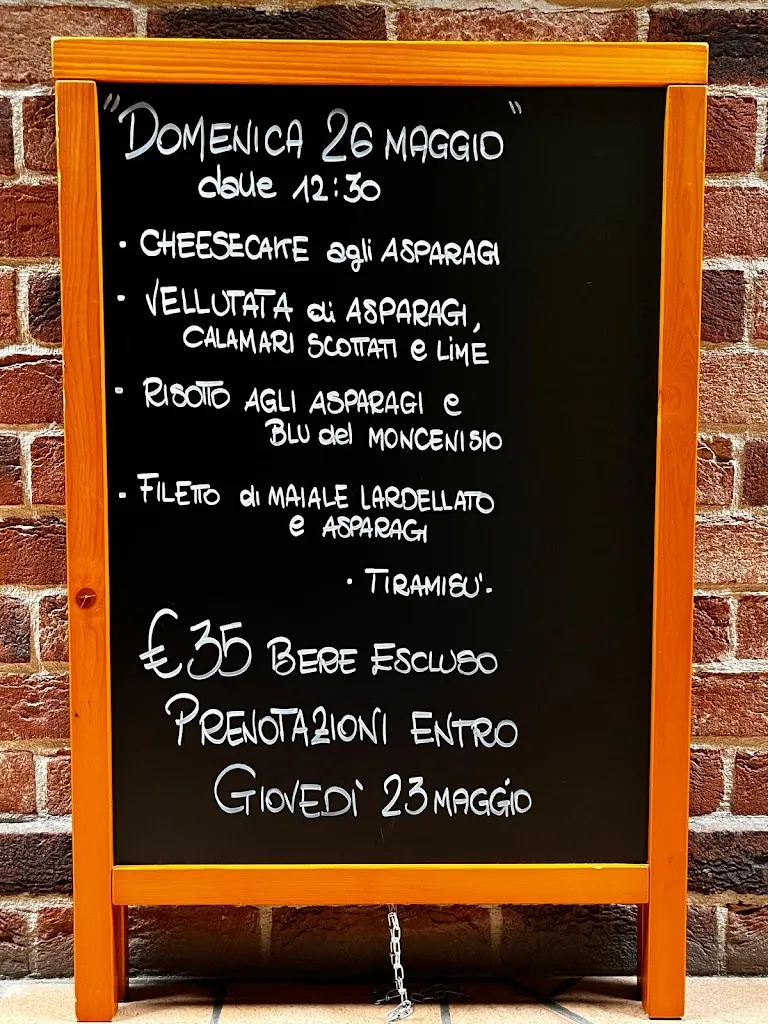 "DOMENICA 26 MAGGIO"
dalle 12:30
· CHEESECAKE agli ASPARAGI
· VELLUTATA di ASPARAGI,
CALAMARI SCOTTATI e LIME
· RISOTTO AGLI ASPARAGI e
BLU del MONCENISIO
· FILETTO di MAIALE LARDELLATO
e ASPARAGI
· TIRAMISU'.
€35 BERE ESCLUSO
PRENOTAZIONI ENTRO
GIOVEDI' 23 MAGGIO